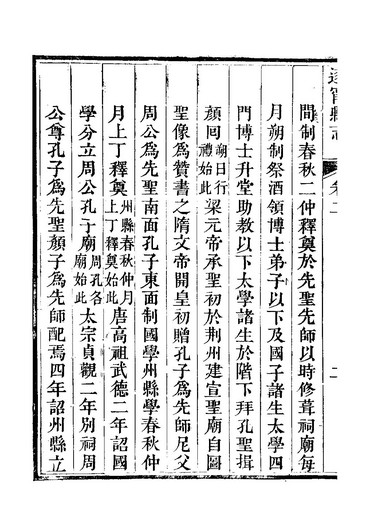 遂寧縣志
卷二
二
間制春秋二仲釋奠於先聖先師以時修葺祠廟每
月朔制祭酒領博士弟子以下及國子諸生太學四
門博士升堂助教以下太學諸生於階下拜孔聖揖
顏回朔日行禮始此梁元帝承聖初於荆州建宣聖廟自圖
聖像為贊書之隋文帝開皇初贈孔子為先師尼父
周公為先聖南面孔子東面制國學州縣學春秋仲
月上丁釋奠州縣春秋仲月上丁釋奠始此唐高祖武德二年詔國
學分立周公孔子廟周孔各廟始此太宗貞觀二年別祠周
公尊孔子為先聖顏子為先師配焉四年詔州縣立